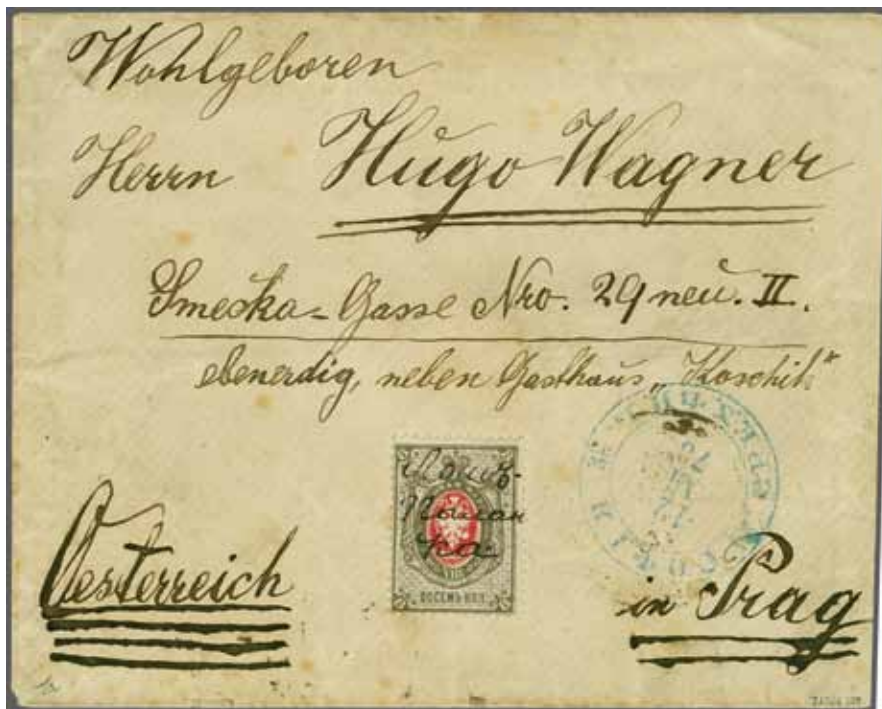 Wohlgeboren
Herrn Hugo Wagner
Smečka-Gasse Nro. 29 neu. II.
ebenerdig, neben Gasthaus „Koschik“
Oesterreich
ВОСЕМЬ КОП.
in Prag